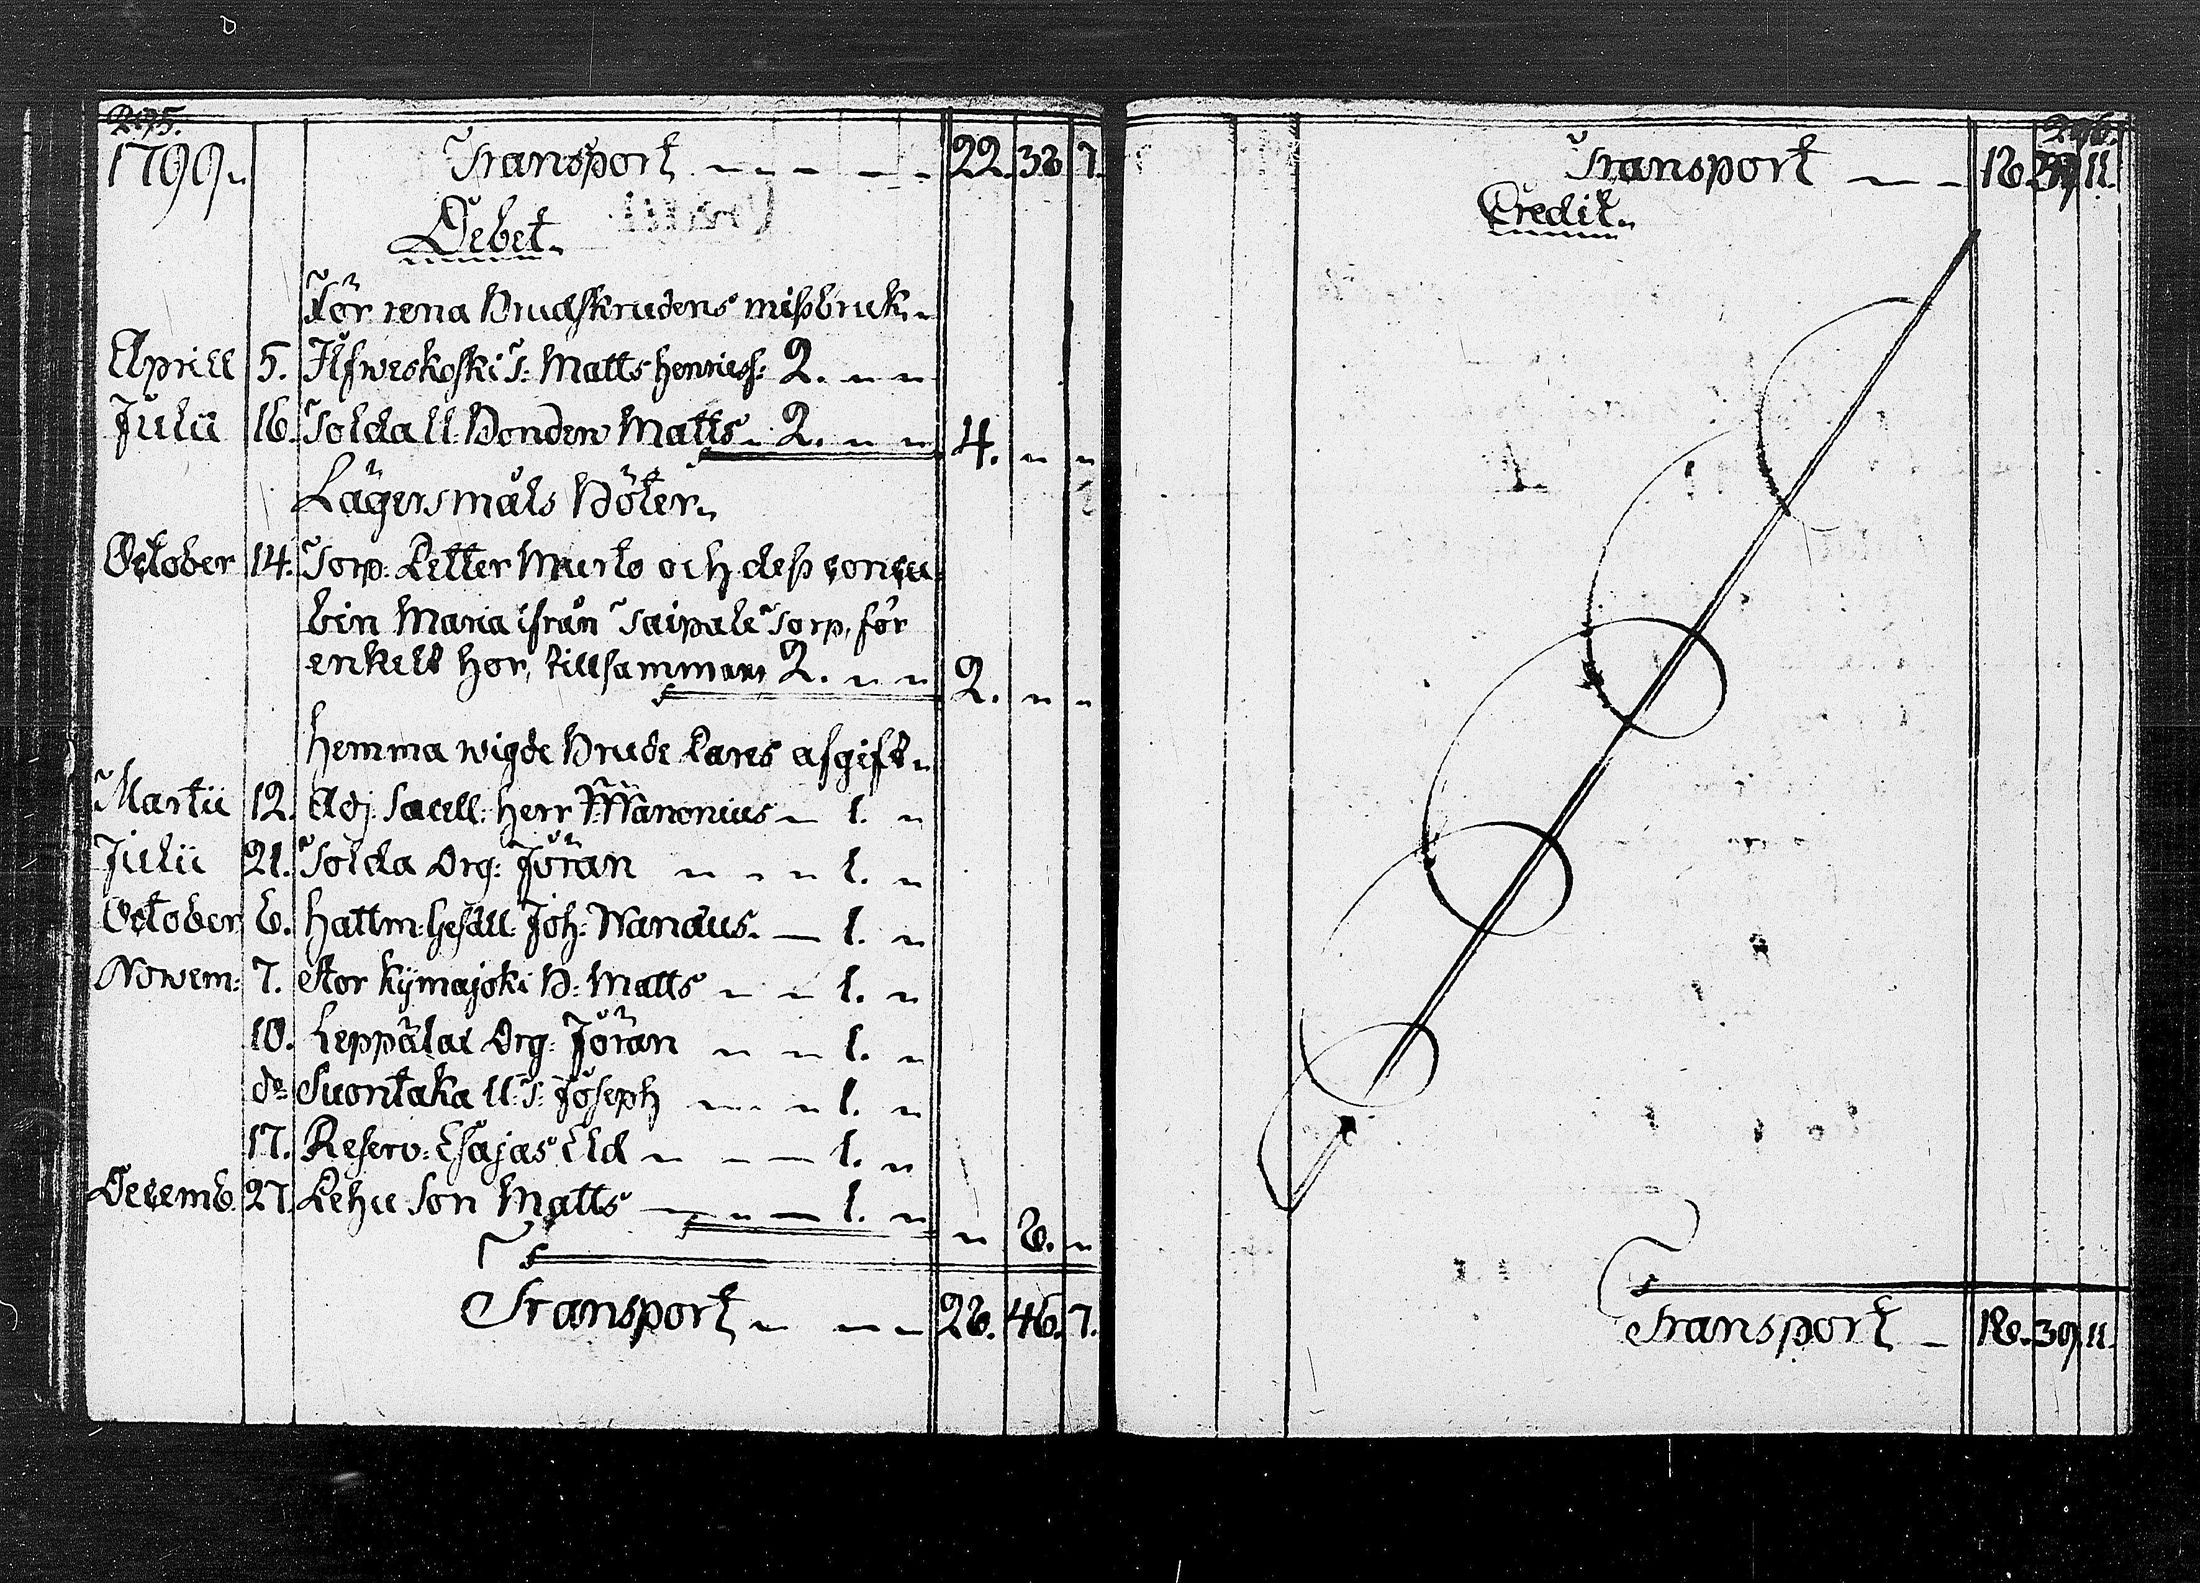 295.
1799.
Transport 22. 38 7.
Debet.
För rena Brudskrudens misbruk.
Aprill 5. Ilfweskoski T: Matts Henriess: 2. " "
Julii 16. Tolda ll: Bonden Matts. 2. " " 4. " "
Lägersmåls Böter.
October 14. Torp: Petter Murto och dess concu
bin Maria ifrån Taipale Torp, för
enkelt hor, tillsammans 2. " " 2. " "
Hemma wigde Brude Pares afgift.
Martii 12. Adj. Sacell: Herr Wanonius 1. "
Julii 21. Tolda Drg: Jöran 1. "
October 6. Hattm: Gesäll: Joh: Wanäus. 1. "
Nowem: 7. Stor Kymajoki B: Matts 1. "
10. Leppälax Drg: Jöran 1. "
do Suontaka ll: T: Joseph 1. "
17. Reserv: Esajas Eld 1. "
Decemb. 27. Pehu Son Matts 1. " " 8. "
Transport 28. 46. 7.
296.
Transport 18. 39 11.
Credit.
Transport 18. 39. 11.